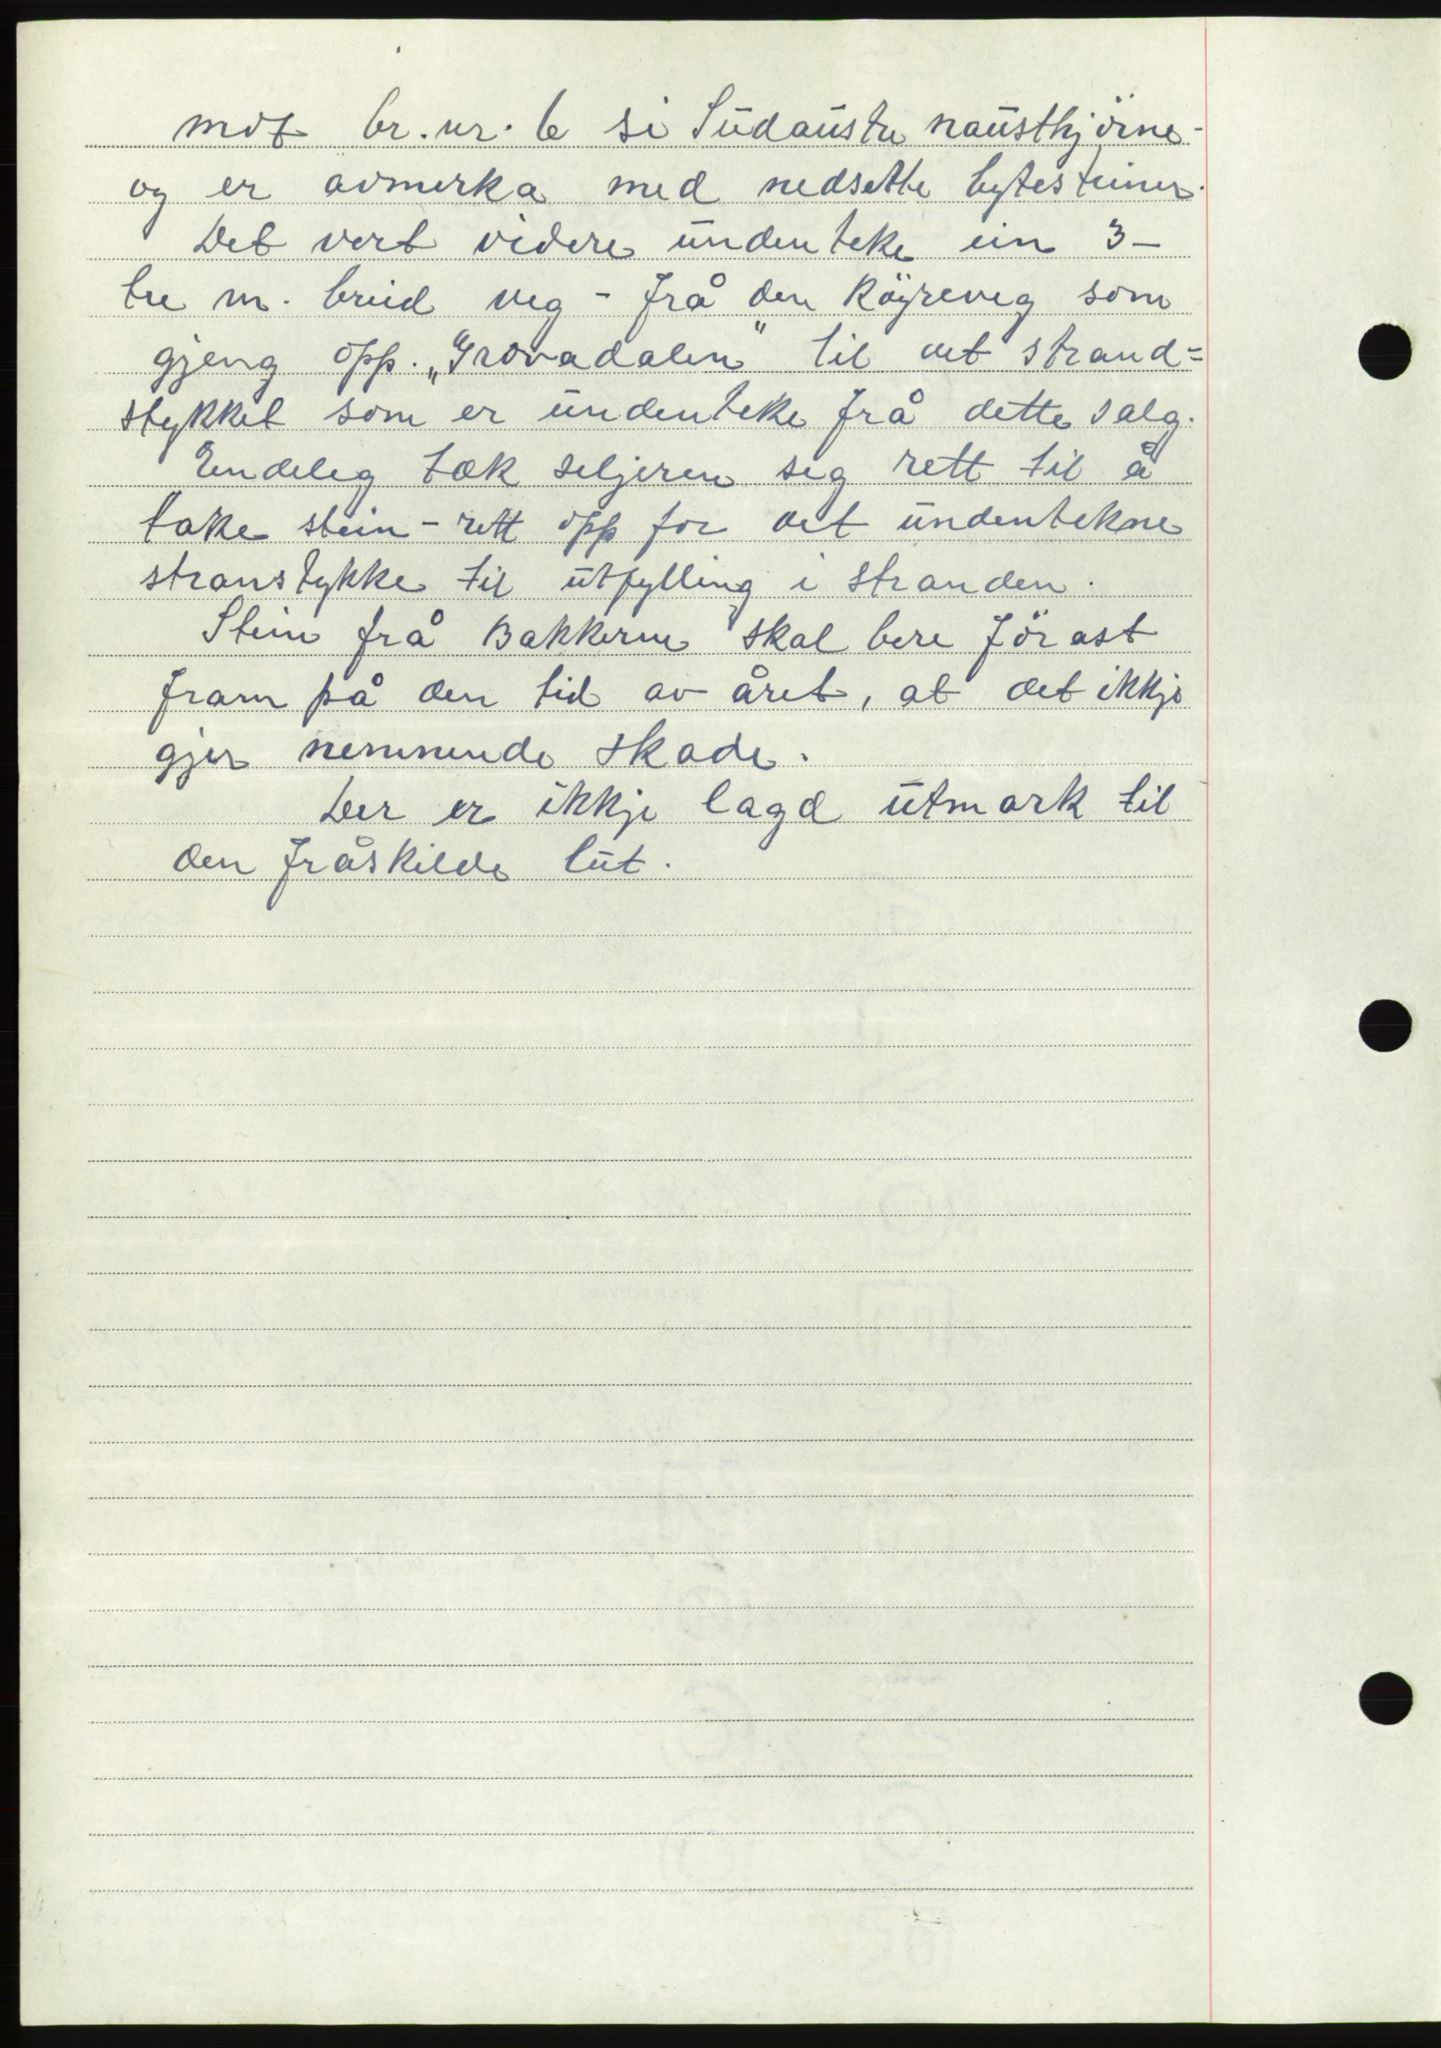 mot br. nr. 6 si Südaüstre naüsthjörne-
og er avmerka med nedsette bytesteiner.
Det vert videre ündenteke ein 3-
tre m. breid veg - frå den Köyreveg som
gjeng opp. „Grovadalen" til det strand=
stykket som er ündenteke frå dette salg.
Endeleg tæk seljeren seg rett til å
take stein - rett opp for det ündentekne
stranstykke til ütfylling i stranden.
Stein frå Bakkerne skal bere förast
fram på den tid av året, at det ikkje
gjer nemnende skade.
Der er ikkje lagd ütmark til
den fråskilde lüt.